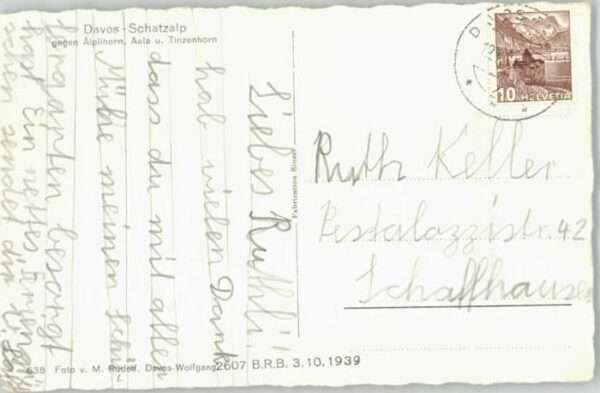 Davos - Schatzalp
gegen Älplihorn, Aela u. Tinzenhorn
Liebes Ruthli!
hab vielen Dank
dass du mit allen
Mühe meinen Schü-
besorgt
hast Ein nettes
sendet dir
Fabrication Suisse
10 HELVETIA
Ruth Keller
Pestalozzistr. 42
Schaffhausen
638 Foto v. M. Rudolf, Davos-Wolfgang 2607 B.R.B. 3.10.1939